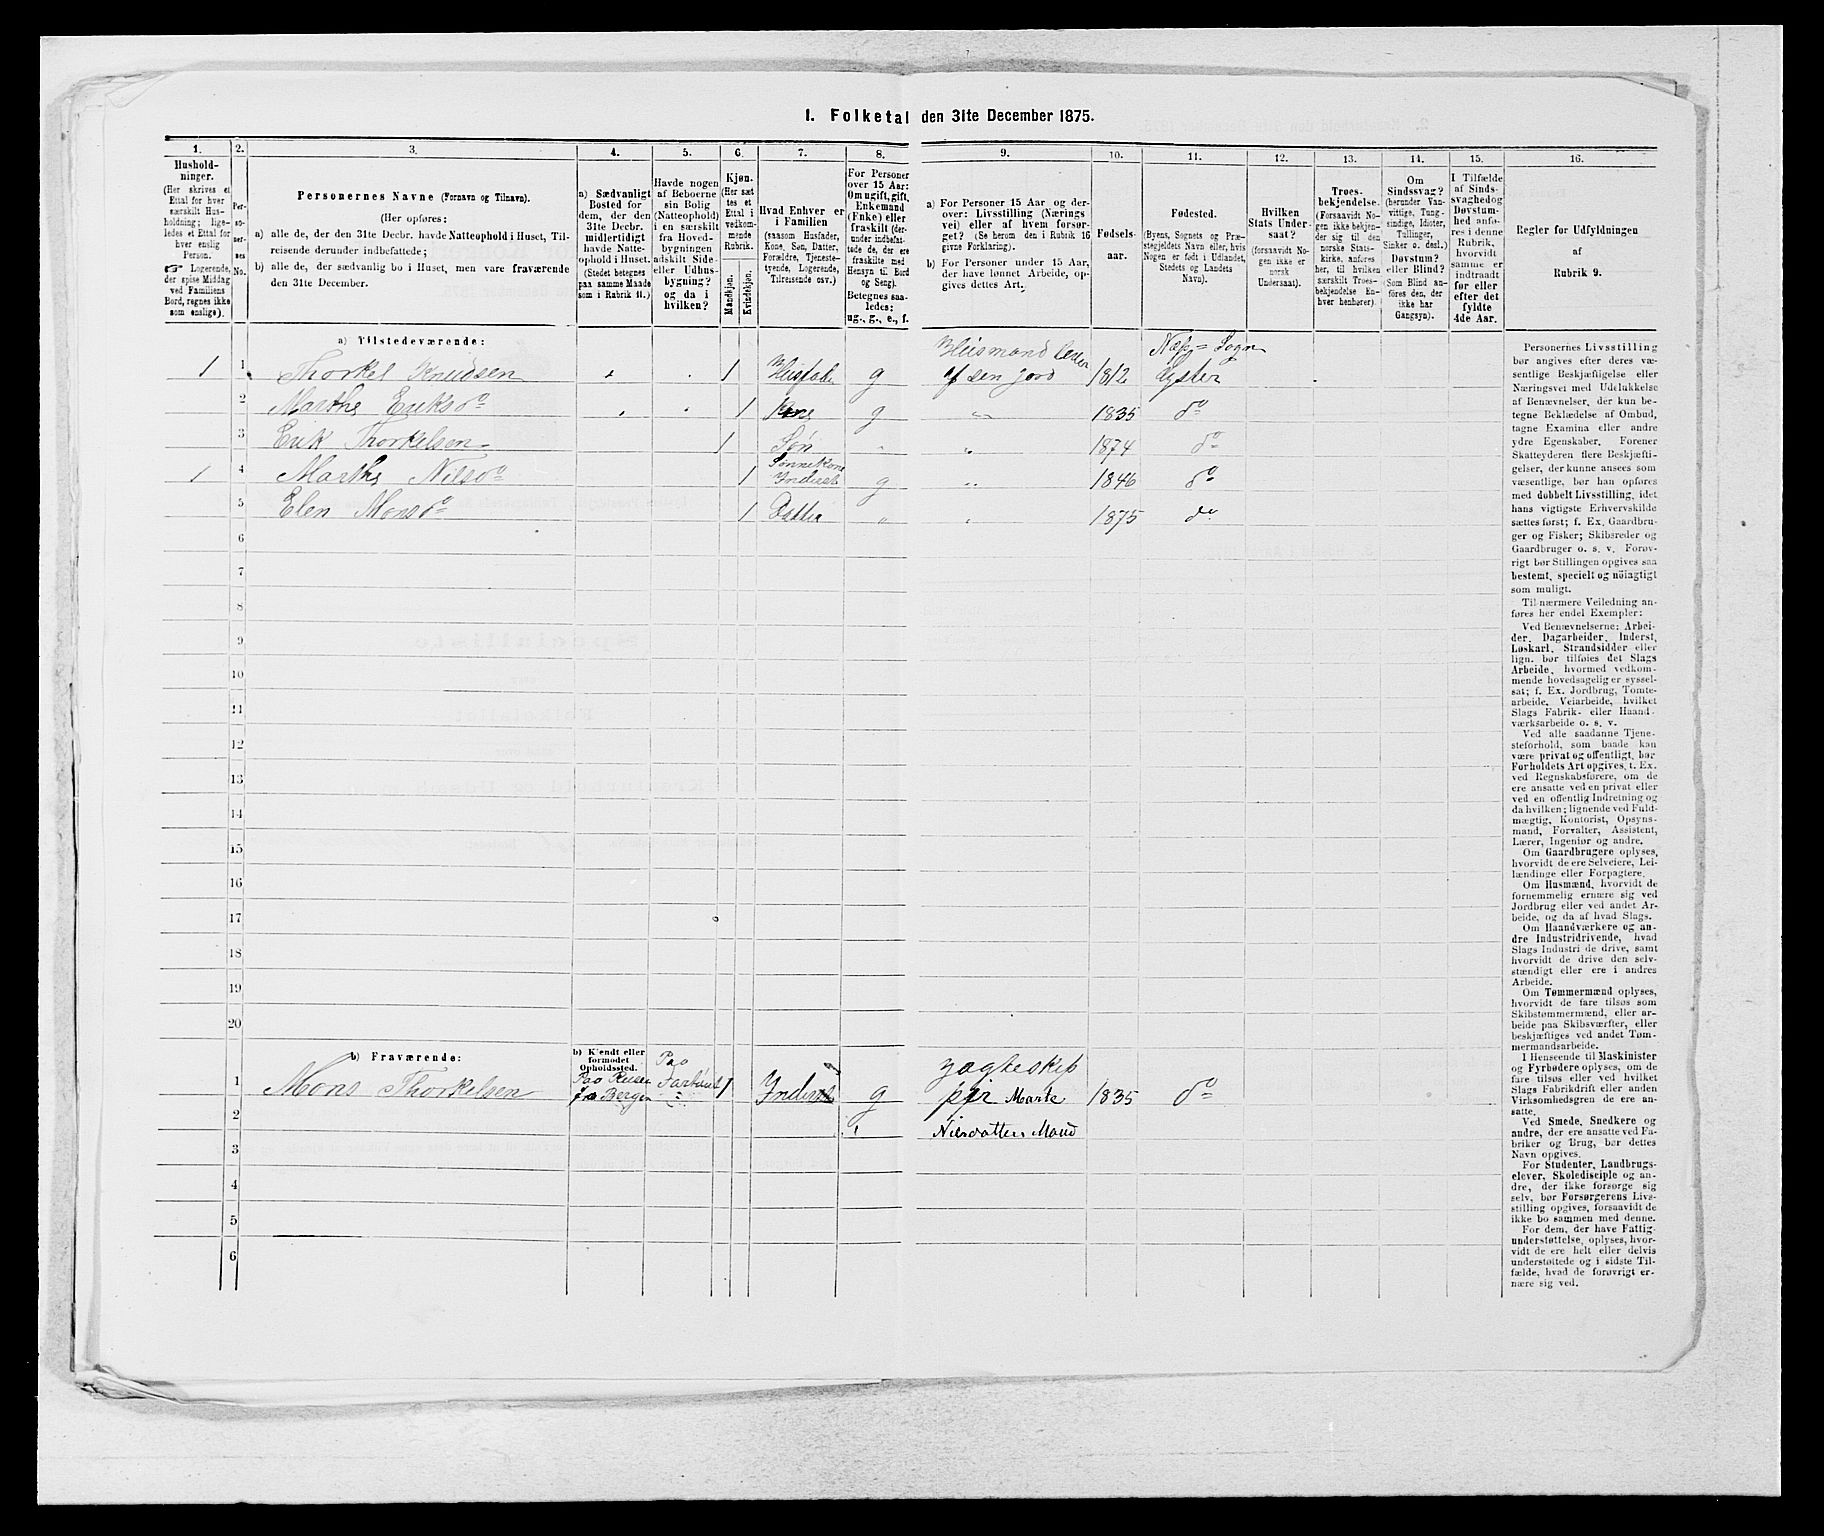 1. Folketal den 31te December 1875.
1.
Hushold-
ninger.
(Her skrives et
Ettal for hver
særskilt Hus-
holdning; lige-
ledes et Ettal for
hver enslig
Person.
☞ Logerende,
der spise Middag
ved Familiens
Bord, regnes ikke
som enslige).
2.
Per-
so-
ner-
ses
No.
3.
Personernes Navne (Fornavn og Tilnavn).
(Her opføres:
a) alle de, der den 31te Decbr. havde Natteophold i Huset, Til-
reisende derunder indbefattede;
b) alle de, der sædvanlig bo i Huset, men vare fraværende
den 31te December.
4.
a) Sædvanligt
Bosted for
dem, der den
31te Decbr.
midlertidigt
havde Natte-
ophold i Huset.
(Stedet betegnes
paa samme Maade
som i Rubrik 11.)
5.
Havde nogen
af Beboerne
sin Bolig
(Natteophold)
i en særskilt
fra Hoved-
bygningen
adskilt Side-
eller Udhus-
bygning?
og da i
hvilken?
6.
Kjøn.
(Her sæt
tes et
Ettal i
vedkom-
mende
Rubrik.
Mandkjøn.
Kvindekjøn.
7.
Hvad Enhver er
i Familien
(saasom Husfader,
Kone, Søn, Datter,
Forældre, Tjeneste-
tyende, Logerende,
Tilreisende osv.)
8.
For Personer
over 15 Aar:
Om ugift, gift,
Enkemand
(Enke) eller
fraskilt (der-
under indbefat-
tede de, der ere
fraskilte med
Hensyn til Bord
og Seng).
Betegnes saa-
ledes:
ug., g., e., f.
9.
a) For Personer 15 Aar og der-
over: Livsstilling (Nærings
vei) eller af hvem forsør-
get? (Se herom den i Rubrik 16
givne Forklaring).
b) For Personer under 15 Aar,
der have lønnet Arbeide, op-
gives dettes Art.
10.
Fødsels-
aar.
11.
Fødested.
(Byens, Sognets og Præ-
stegjeldets Navn eller, hvis
Nogen er født i Udlandet,
Stedets og Landets
Navn).
12.
Hvilken
Stats Under-
saat?
(forsaavidt No-
gen ikke er
norsk
Undersaat).
13.
Troes-
bekjendelse.
(Forsaavidt No-
gen ikke bekjen-
der sig til den
norske Stats-
kirke, anføres
her, til hvilken
særskilt Troes-
bekjendelse En-
hver henhører).
14.
Om
Sindssvag?
(herunder Van-
vittige, Tung-
sindige, Idioter,
Tullinger,
Sinker o. desl.)
Døvstum?
eller Blind?
(Som Blind an-
føres den, der
ikke har
Gangsyn).
15.
I Tilfælde
af Sinds-
svaghed og
Døvstum-
hed anfø-
res i denne
Rubrik,
hvorvidt
samme er
indtraadt
før eller
efter det
fyldte
4de Aar.
16.
Regler for Udfyldningen
af
Rubrik 9.
a) Tilstedeværende:
Næs = Sogn
1 1 Thorkel Knudsen 1 g af sen jord 1812 Lyster
2 Marthe Eriksdo 1 Kone g 1835 do
3 Erik Thorkelsen 1 Søn 1874 do
Sønnekone
1 4 Marthe Nilsdo 1 Inderst g 1846 do
5 Elen Monsdo 1 Datter 1875 do
6
7
8
9
10
11
12
13
14
15
16
17
18
19
20
b) Fraværende:
b) Kjendt eller
formodet
Opholdssted.
Paa
1 Mons Thorkelsen Paa Reise
fra Bergen 1 Inderst g Marte 1835 do
2 Nilsdatters Mand
3
4
5
6
Personernes Livsstilling
bør angives efter deres væ-
sentlige Beskjæftigelse eller
Næringsvei med Udelukkelse
af Benævnelser, der kun be-
tegne Beklædelse af Ombud,
tagne Examina eller andre
ydre Egenskaber. Forener
Skatteyderen flere Beskjæfti-
gelser, der kunne ansees som
væsentlige, bør han opføres
med dobbelt Livsstilling, idet
hans vigtigste Erhvervskilde
sættes først; f. Ex. Gaardbru-
ger og Fisker; Skibsreder og
Gaardbruger o. s. v. Forøv-
rigt bør Stillingen opgives saa
bestemt, specielt og nøiagtigt
som muligt.
Til nærmere Veiledning an-
føres her endel Exempler:
Ved Benævnelserne: Arbei-
der, Dagarbeider, Inderst,
Løskarl, Strandsidder eller
lign. bør tilføies det Slags
Arbeide, hvormed vedkom-
mende hovedsagelig er syssel-
sat; f. Ex. Jordbrug, Tomte-
arbeide, Veiarbeide, hvilket
Slags Fabrik- eller Haand-
værksarbeide o. s. v.
Ved alle saadanne Tjene-
steforhold, som baade kan
være privat og offentligt, bør
Forholdets Art opgives, t. Ex.
ved Regnskabsførere, om de
ere ansatte ved en privat eller
ved en offentlig Indretning og
da hvilken; lignende ved Fuld-
mægtig, Kontorist, Opsyns-
mand, Forvalter, Assistent,
Lærer, Ingeniør og andre.
Om Gaardbrugere oplyses,
hvorvidt de ere Selveiere, Lei-
lændinge eller Forpagtere.
Om Husmænd, hvorvidt de
fornemmelig ernære sig ved
Jordbrug eller ved andet Ar-
beide, og da af hvad Slags.
Om Haandværkere og an-
dre Industridrivende, hvad
Slags Industri de drive, samt
hvorvidt de drive den selv-
stændigt eller ere i andres
Arbeide.
Om Tømmermænd oplyses,
hvorvidt de fare tilsøs som
Skibstømmermænd, eller ar-
beide paa Skibsværfter, eller
beskjæftiges ved andet Tøm-
mermandsarbeide.
I Henseende til Maskinister
og Fyrbødere oplyses, om de
fare tilsøs eller ved hvilket
Slags Fabrikdrift eller anden
Virksomhedsgren de ere an-
satte.
Ved Smede, Snedkere og
andre, der ere ansatte ved Fa-
briker og Brug, bør dettes
Navn opgives.
For Studenter, Landbrugs-
elever, Skoledisciple og an-
dre, der ikke forsørge sig
selv, bør Forsørgerens Livs-
stilling opgives, forsaavidt de
ikke bo sammen med denne.
For dem, der have Fattig-
understøttelse, oplyses, hvor-
vidt de ere helt eller delvis
understøttede og i sidste Til-
fælde, hvad de forøvrigt er-
nære sig ved.